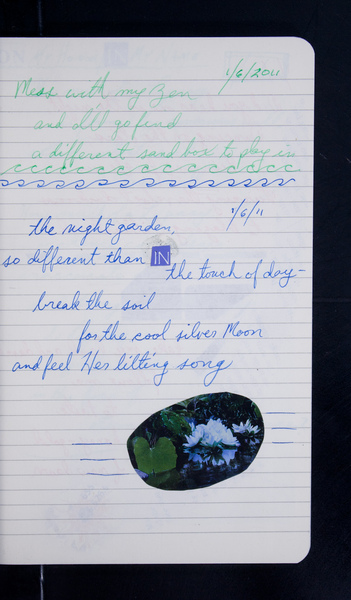 1/6/2011
Mess with my Zen
and I'll go find
a different sand box to play in
1/6/11
the night garden,
so different than IN
the touch of day-
break the soil
for the cool silver Moon
and feel Her lilting song